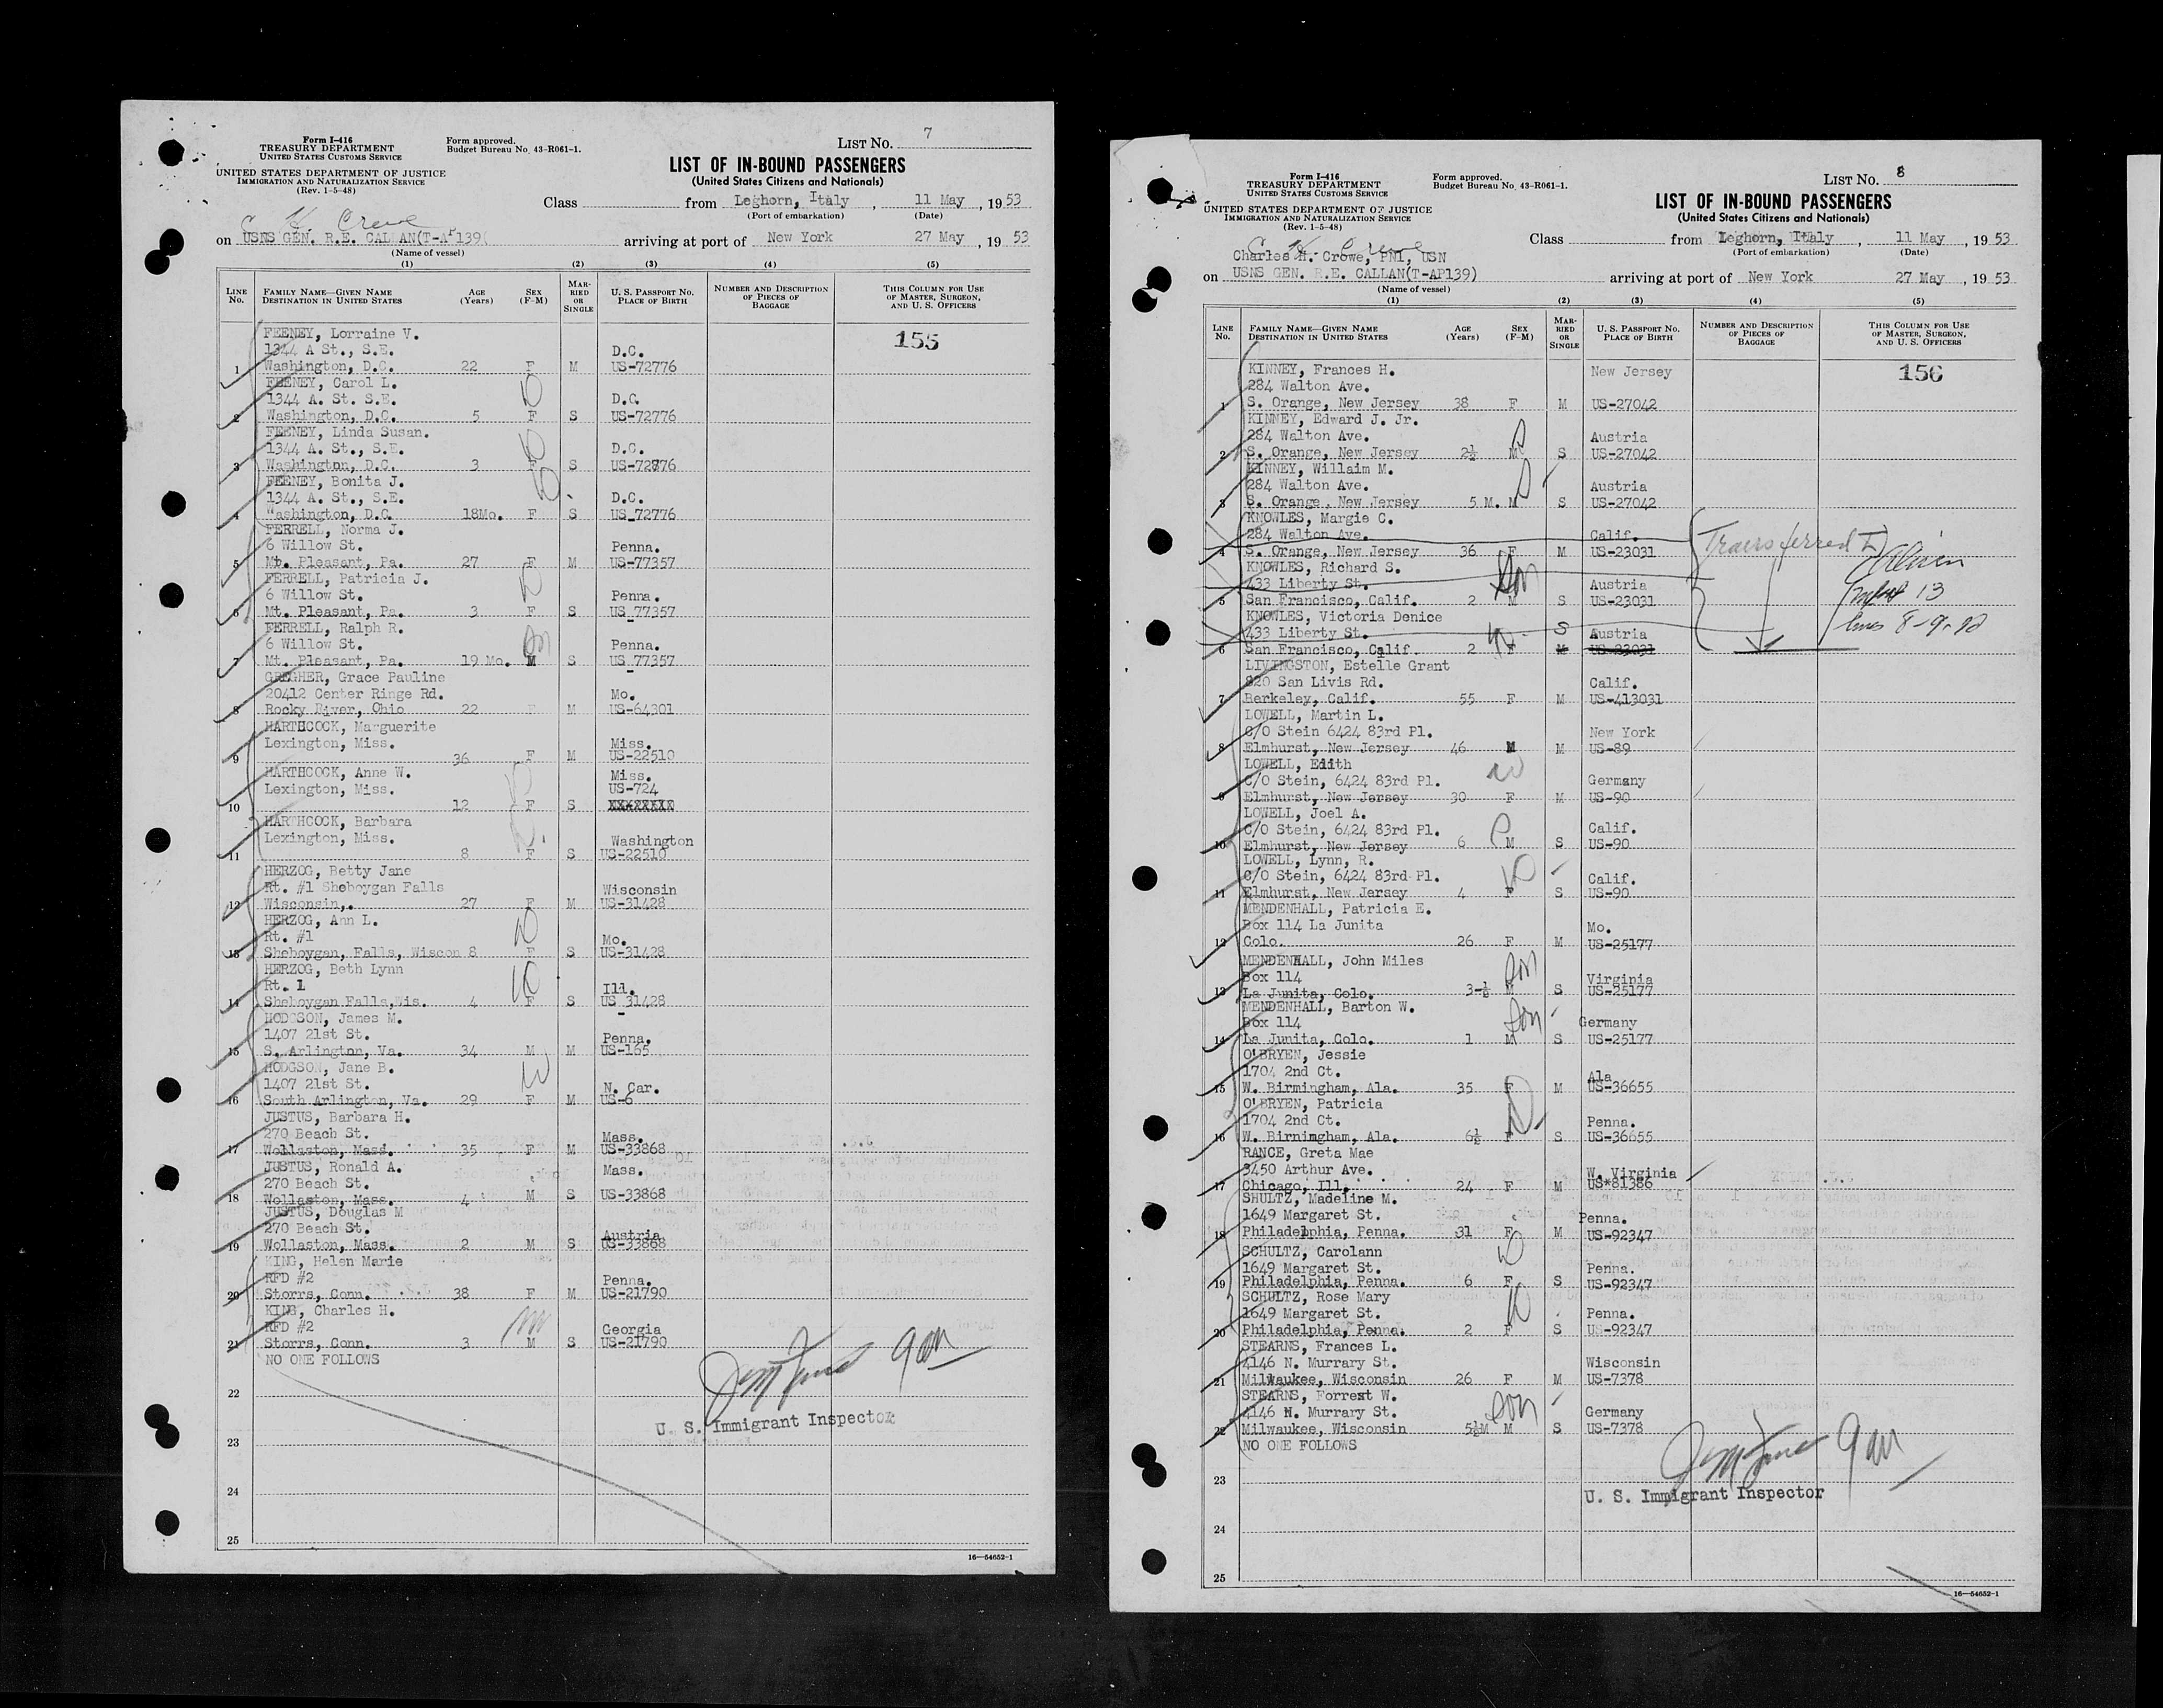 Form I-416
TREASURY DEPARTMENT
UNITED STATES CUSTOMS SERVICE
Form approved.
Budget Bureau No. 43-R061-1.
LIST NO. 7
UNITED STATES DEPARTMENT OF JUSTICE
IMMIGRATION AND NATURALIZATION SERVICE
(Rev. 1-5-48)
LIST OF IN-BOUND PASSENGERS
(United States Citizens and Nationals)
Class from Leghorn, Italy , 11 May , 1953
(Port of embarkation) (Date)
C H. Crowe
on USNS GEN. R.E. CALLAN(T-AP139( arriving at port of New York 27 May , 1953
(Name of vessel)
(1) (2) (3) (4) (5)
LINE No. FAMILY NAME—GIVEN NAME DESTINATION IN UNITED STATES AGE (Years) SEX (F-M) MARRIED OR SINGLE U. S. PASSPORT NO. PLACE OF BIRTH NUMBER AND DESCRIPTION OF PIECES OF BAGGAGE THIS COLUMN FOR USE OF MASTER, SURGEON, AND U. S. OFFICERS
155
FEENEY, Lorraine V.
1344 A St., S.E. D.C.
1 Washington, D.C. 22 F M US-72776
FEENEY, Carol L.
1344 A. St. S.E. D.C.
2 Washington, D.C. 5 F S US-72776
FEENEY, Linda Susan.
1344 A. St., S.E. D.C.
3 Washington, D.C. 3 F S US-72776
FEENEY, Bonita J.
1344 A. St., S.E. D.C.
4 "ashington, D.C. 18Mo. F S US_72776
FERRELL, Norma J.
6 Willow St. Penna.
5 Mt. Pleasant, Pa. 27 F M US-77357
FERRELL, Patricia J.
6 Willow St. Penna.
6 Mt. Pleasant, Pa. 3 F S US_77357
FERRELL, Ralph R.
6 Willow St. Penna.
7 Mt. Pleasant, Pa. 19 Mo. M S US_77357
GREGHER, Grace Pauline
20412 Center Ringe Rd. Mo.
8 Rocky River, Ohio 22 F M US-64301
HARTHCOCK, Marguerite
Lexington, Miss. Miss.
9 36 F M US-22510
HARTHCOCK, Anne W. Miss.
Lexington, Miss. US-724
10 12 F S XXXXXXXX
HARTHCOCK, Barbara
Lexington, Miss. Washington
11 8 F S US-22510
HERZOG, Betty Jane
Rt. #1 Sheboygan Falls Wisconsin
12 Wisconsin,. 27 F M US-31428
HERZOG, Ann L.
Rt. #1 Mo.
13 Sheboygan, Falls, Wiscon 8 F S US-31428
HERZOG, Beth Lynn
Rt. 1 Ill.
14 Sheboygan Falls,Wis. 4 F S US_31428
HODGSON, James M.
1407 21st St. Penna.
15 S. Arlington, Va. 34 M M US-165
HODGSON, Jane B.
1407 21st St. N. Car.
16 South Arlington, Va. 29 F M US-6
JUSTUS, Barbara H.
270 Beach St. Mass.
17 Wollaston, Mass. 35 F M US-33868
JUSTUS, Ronald A. Mass.
270 Beach St.
18 Wollaston, Mass. 4 M S US-33868
JUSTUS, Douglas M
270 Beach St. Austria
19 Wollaston, Mass. 2 M S US-33868
KING, Helen Marie
RFD #2 Penna.
20 Storrs, Conn. 38 F M US-21790
KING, Charles H.
RFD #2 Georgia
21 Storrs, Conn. 3 M S US-21790
NO ONE FOLLOWS
22
U. S. Immigrant Inspector
23
24
25
16—54652-1
Form I-416
TREASURY DEPARTMENT
UNITED STATES CUSTOMS SERVICE
Form approved.
Budget Bureau No. 43-R061-1.
LIST NO. 8
UNITED STATES DEPARTMENT OF JUSTICE
IMMIGRATION AND NATURALIZATION SERVICE
(Rev. 1-5-48)
LIST OF IN-BOUND PASSENGERS
(United States Citizens and Nationals)
Class from Leghorn, Italy , 11 May , 1953
(Port of embarkation) (Date)
C H. Crowe
Charles H. Crowe, PN1, USN
on USNS GEN. R.E. CALLAN(T-AP139) arriving at port of New York 27 May , 1953
(Name of vessel)
(1) (2) (3) (4) (5)
LINE No. FAMILY NAME—GIVEN NAME DESTINATION IN UNITED STATES AGE (Years) SEX (F-M) MARRIED OR SINGLE U. S. PASSPORT NO. PLACE OF BIRTH NUMBER AND DESCRIPTION OF PIECES OF BAGGAGE THIS COLUMN FOR USE OF MASTER, SURGEON, AND U. S. OFFICERS
KINNEY, Frances H. New Jersey 156
284 Walton Ave.
1 S. Orange, New Jersey 38 F M US-27042
KINNEY, Edward J. Jr.
284 Walton Ave. Austria
2 S. Orange, New Jersey 2½ M S US-27042
KINNEY, Willaim M.
284 Walton Ave. Austria
3 S. Orange, New Jersey 5 M. M S US-27042
KNOWLES, Margie C.
284 Walton Ave. Calif.
4 S. Orange, New Jersey 36 F M US-23031 Transferred to Alien
KNOWLES, Richard S.
433 Liberty St. Austria
5 San Francisco, Calif. 2 son M S US-23031 13
KNOWLES, Victoria Denice
433 Liberty St. S Austria lines 8-9-10
6 San Francisco, Calif. 2 F M US-23031
LIVINGSTON, Estelle Grant
820 San Livis Rd. Calif.
7 Berkeley, Calif. 55 F M US-413031
LOWELL, Martin L.
C/O Stein 6424 83rd Pl. New York
8 Elmhurst, New Jersey 46 M M US-89
LOWELL, Edith
C/O Stein, 6424 83rd Pl. Germany
9 Elmhurst, New Jersey 30 F M US-90
LOWELL, Joel A.
C/O Stein, 6424 83rd Pl. Calif.
10 Elmhurst, New Jersey 6 M S US-90
LOWELL, Lynn, R.
C/O Stein, 6424 83rd Pl. Calif.
11 Elmhurst, New Jersey 4 F S US-90
MENDENHALL, Patricia E.
Box 114 La Junita Mo.
12 Colo. 26 F M US-25177
MENDENHALL, John Miles
Box 114 son Virginia
13 La Junita, Colo. 3-½ M S US-25177
MENDENHALL, Barton W.
Box 114 son Germany
14 La Junita, Colo. 1 M S US-25177
O'BRYEN, Jessie
1704 2nd Ct. Ala
15 W. Birmingham, Ala. 35 F M US-36655
O'BRYEN, Patricia
1704 2nd Ct. Penna.
16 W. Birningham, Ala. 6½ F S US-36655
RANCE, Greta Mae
3450 Arthur Ave. W. Virginia
17 Chicago, Ill. 24 F M US*81386
SHULTZ, Madeline M.
1649 Margaret St. Penna.
18 Philadelphia, Penna. 31 F M US-92347
SCHULTZ, Carolann
1649 Margaret St. Penna.
19 Philadelphia, Penna. 6 F S US-92347
SCHULTZ, Rose Mary
1649 Margaret St. Penna.
20 Philadelphia, Penna. 2 F S US-92347
STEARNS, Frances L.
4146 N. Murrary St. Wisconsin
21 Milwaukee, Wisconsin 26 F M US-7378
STEARNS, Forrest W.
4146 N. Murrary St. son Germany
22 Milwaukee, Wisconsin 5½M M S US-7378
NO ONE FOLLOWS
23
U. S. Immigrant Inspector
24
25
16—54652-1